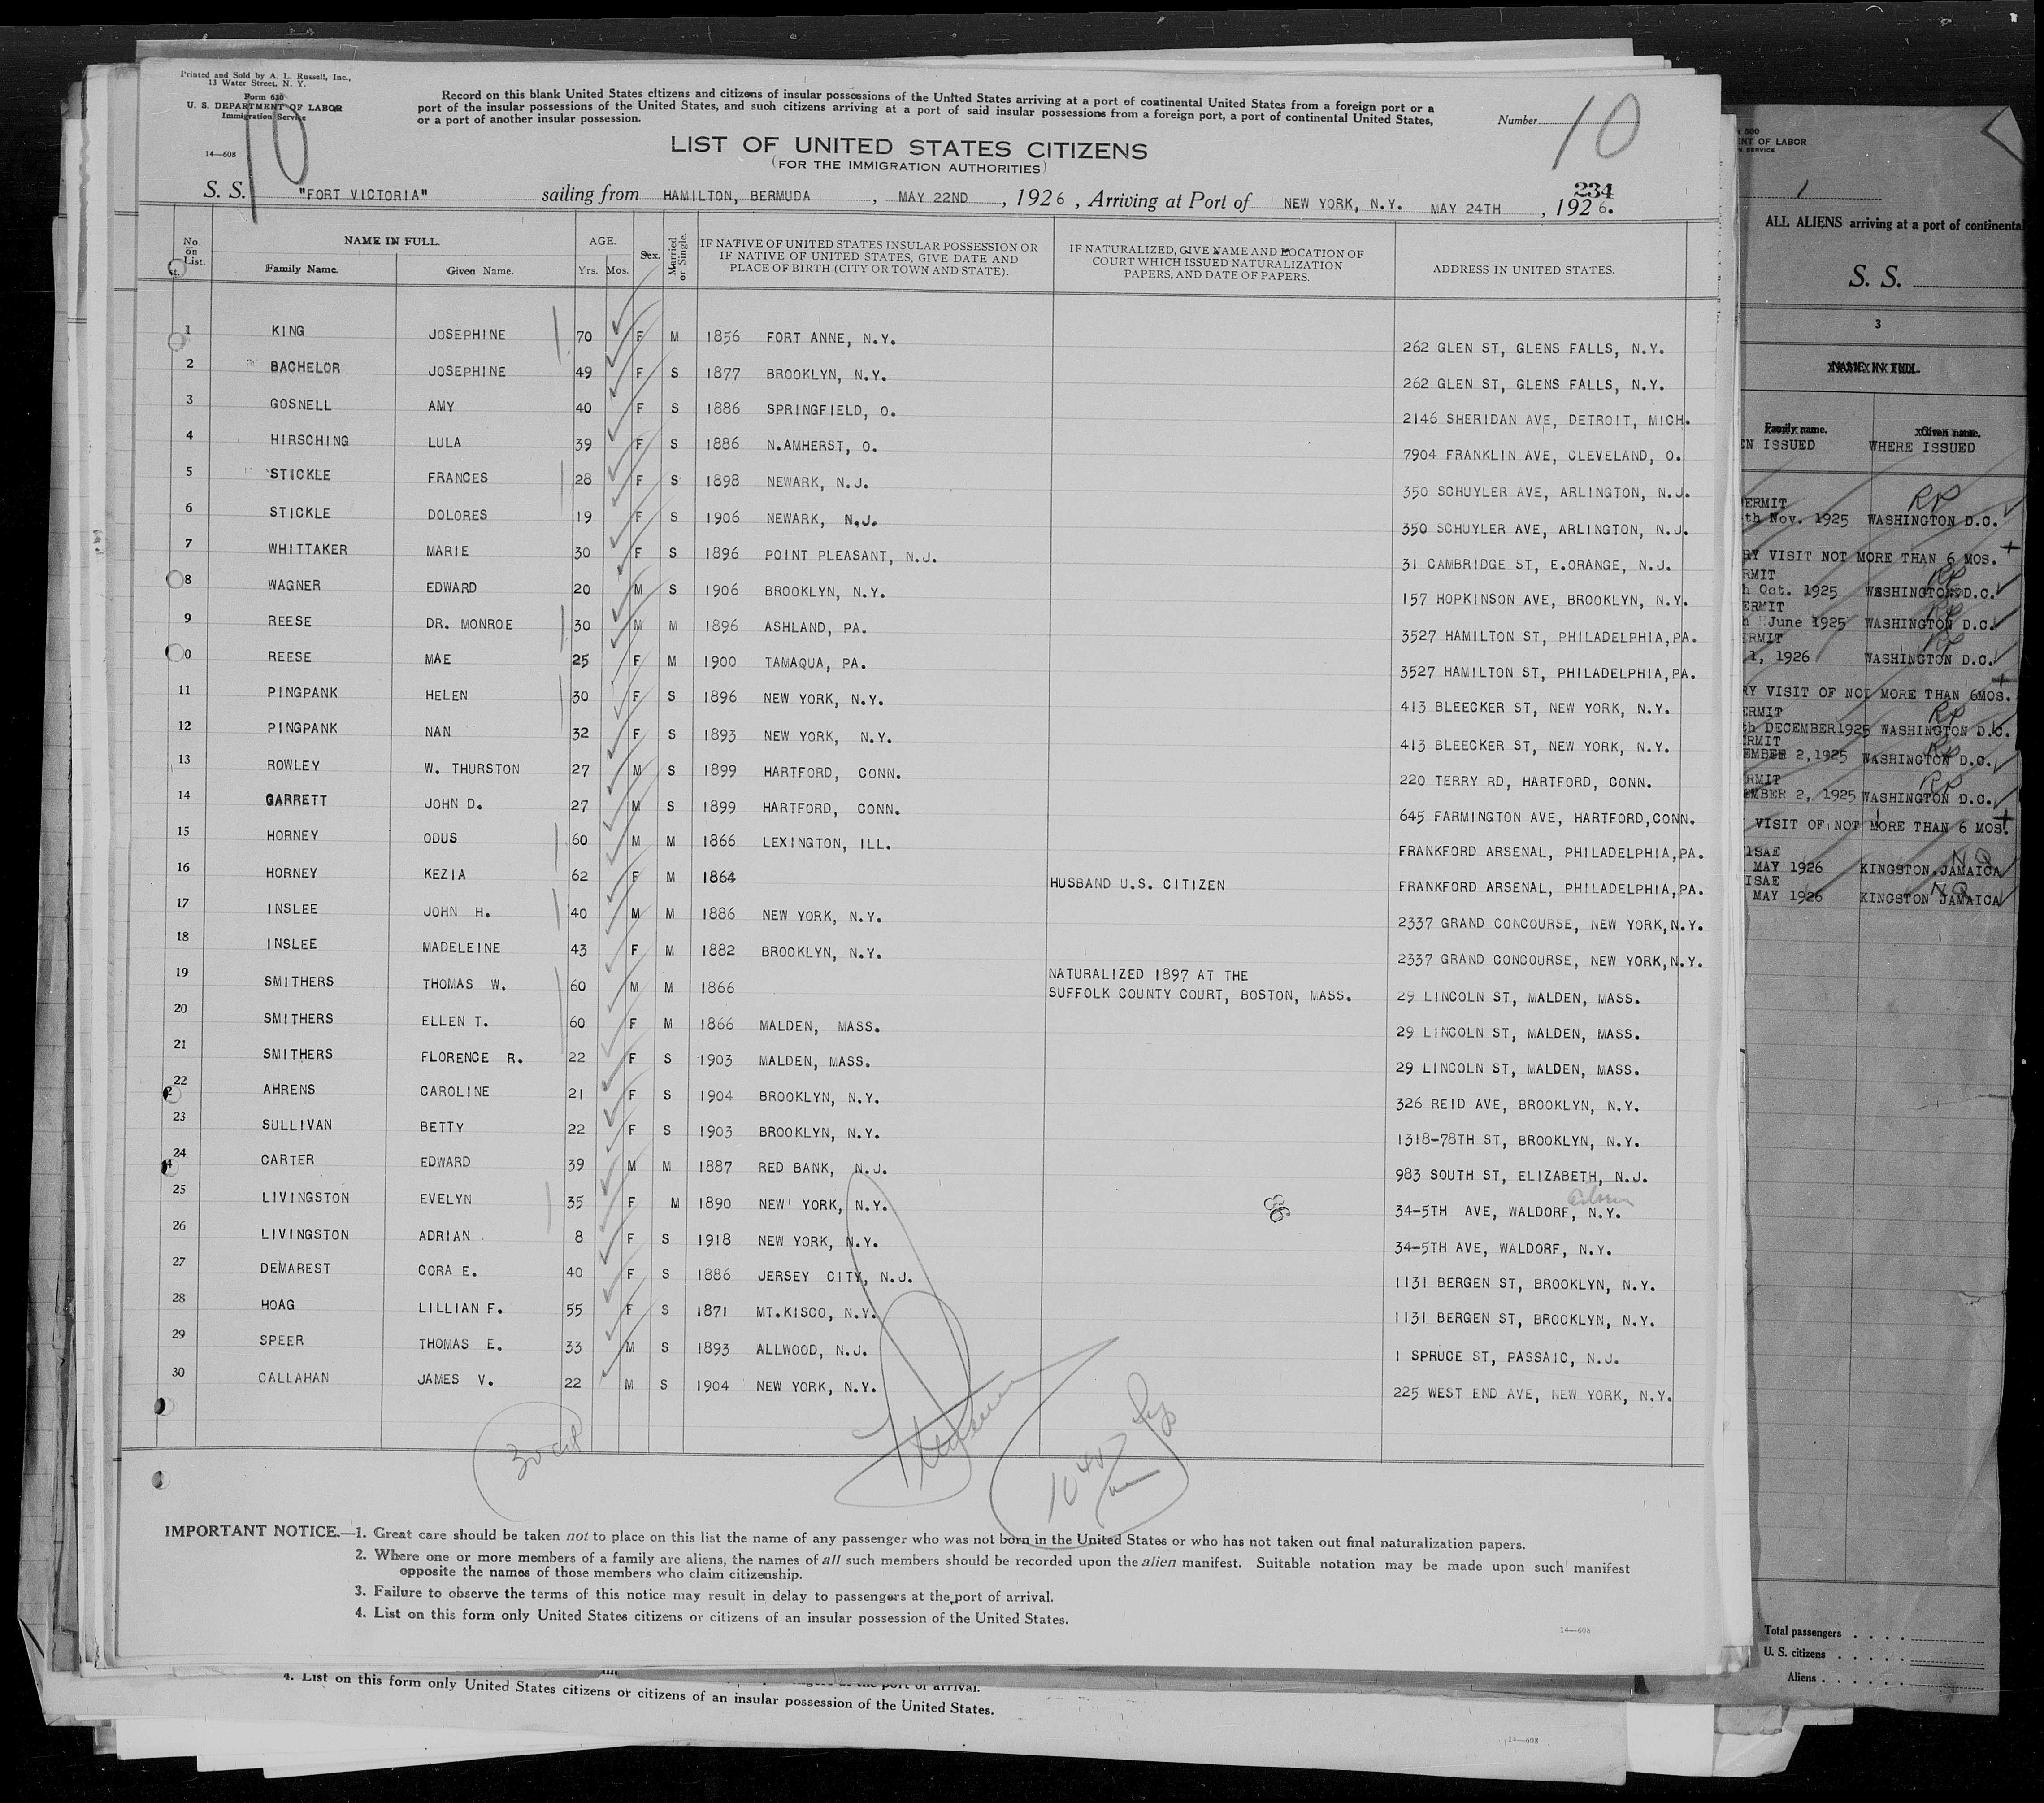 Printed and Sold by A. L. Russell, Inc.,
13 Water Street, N. Y.
Form 630
U. S. DEPARTMENT OF LABOR
Immigration Service
14—608
10
Record on this blank United States citizens and citizens of insular possessions of the United States arriving at a port of continental United States from a foreign port or a
port of the insular possessions of the United States, and such citizens arriving at a port of said insular possessions from a foreign port, a port of continental United States,
or a port of another insular possession.
Number 10
LIST OF UNITED STATES CITIZENS
(FOR THE IMMIGRATION AUTHORITIES)
234
S. S. "FORT VICTORIA" sailing from HAMILTON, BERMUDA, MAY 22ND, 1926, Arriving at Port of NEW YORK, N.Y. MAY 24TH, 1926.
No. on List. NAME IN FULL. AGE. Sex. Married or Single. IF NATIVE OF UNITED STATES INSULAR POSSESSION OR IF NATIVE OF UNITED STATES, GIVE DATE AND PLACE OF BIRTH (CITY OR TOWN AND STATE). IF NATURALIZED, GIVE NAME AND LOCATION OF COURT WHICH ISSUED NATURALIZATION PAPERS, AND DATE OF PAPERS. ADDRESS IN UNITED STATES.
Family Name. Given Name. Yrs. Mos.
1 KING JOSEPHINE 70 F M 1856 FORT ANNE, N.Y. 262 GLEN ST, GLENS FALLS, N.Y.
2 BACHELOR JOSEPHINE 49 F S 1877 BROOKLYN, N.Y. 262 GLEN ST, GLENS FALLS, N.Y.
3 GOSNELL AMY 40 F S 1886 SPRINGFIELD, O. 2146 SHERIDAN AVE, DETROIT, MICH.
4 HIRSCHING LULA 39 F S 1886 N.AMHERST, O. 7904 FRANKLIN AVE, CLEVELAND, O.
5 STICKLE FRANCES 28 F S 1898 NEWARK, N.J. 350 SCHUYLER AVE, ARLINGTON, N.J.
6 STICKLE DOLORES 19 F S 1906 NEWARK, N.J. 350 SCHUYLER AVE, ARLINGTON, N.J.
7 WHITTAKER MARIE 30 F S 1896 POINT PLEASANT, N.J. 31 CAMBRIDGE ST, E.ORANGE, N.J.
8 WAGNER EDWARD 20 M S 1906 BROOKLYN, N.Y. 157 HOPKINSON AVE, BROOKLYN, N.Y.
9 REESE DR. MONROE 30 M M 1896 ASHLAND, PA. 3527 HAMILTON ST, PHILADELPHIA,PA.
0 REESE MAE 25 F M 1900 TAMAQUA, PA. 3527 HAMILTON ST, PHILADELPHIA,PA.
11 PINGPANK HELEN 30 F S 1896 NEW YORK, N.Y. 413 BLEECKER ST, NEW YORK, N.Y.
12 PINGPANK NAN 32 F S 1893 NEW YORK, N.Y. 413 BLEECKER ST, NEW YORK, N.Y.
13 ROWLEY W. THURSTON 27 M S 1899 HARTFORD, CONN. 220 TERRY RD, HARTFORD, CONN.
14 GARRETT JOHN D. 27 M S 1899 HARTFORD, CONN. 645 FARMINGTON AVE, HARTFORD,CONN.
15 HORNEY ODUS 60 M M 1866 LEXINGTON, ILL. FRANKFORD ARSENAL, PHILADELPHIA,PA.
16 HORNEY KEZIA 62 F M 1864 HUSBAND U.S. CITIZEN FRANKFORD ARSENAL, PHILADELPHIA,PA.
17 INSLEE JOHN H. 40 M M 1886 NEW YORK, N.Y. 2337 GRAND CONCOURSE, NEW YORK,N.Y.
18 INSLEE MADELEINE 43 F M 1882 BROOKLYN, N.Y. 2337 GRAND CONCOURSE, NEW YORK,N.Y.
19 SMITHERS THOMAS W. 60 M M 1866 NATURALIZED 1897 AT THE SUFFOLK COUNTY COURT, BOSTON, MASS. 29 LINCOLN ST, MALDEN, MASS.
20 SMITHERS ELLEN T. 60 F M 1866 MALDEN, MASS. 29 LINCOLN ST, MALDEN, MASS.
21 SMITHERS FLORENCE R. 22 F S 1903 MALDEN, MASS. 29 LINCOLN ST, MALDEN, MASS.
22 AHRENS CAROLINE 21 F S 1904 BROOKLYN, N.Y. 326 REID AVE, BROOKLYN, N.Y.
23 SULLIVAN BETTY 22 F S 1903 BROOKLYN, N.Y. 1318-78TH ST, BROOKLYN, N.Y.
24 CARTER EDWARD 39 M M 1887 RED BANK, N.J. 983 SOUTH ST, ELIZABETH, N.J.
25 LIVINGSTON EVELYN 35 F M 1890 NEW YORK, N.Y. 34-5TH AVE, WALDORF, N.Y.
26 LIVINGSTON ADRIAN 8 F S 1918 NEW YORK, N.Y. 34-5TH AVE, WALDORF, N.Y.
27 DEMAREST CORA E. 40 F S 1886 JERSEY CITY, N.J. 1131 BERGEN ST, BROOKLYN, N.Y.
28 HOAG LILLIAN F. 55 F S 1871 MT.KISCO, N.Y. 1131 BERGEN ST, BROOKLYN, N.Y.
29 SPEER THOMAS E. 33 M S 1893 ALLWOOD, N.J. 1 SPRUCE ST, PASSAIC, N.J.
30 CALLAHAN JAMES V. 22 M S 1904 NEW YORK, N.Y. 225 WEST END AVE, NEW YORK, N.Y.
IMPORTANT NOTICE.—1. Great care should be taken not to place on this list the name of any passenger who was not born in the United States or who has not taken out final naturalization papers.
2. Where one or more members of a family are aliens, the names of all such members should be recorded upon the alien manifest. Suitable notation may be made upon such manifest
opposite the names of those members who claim citizenship.
3. Failure to observe the terms of this notice may result in delay to passengers at the port of arrival.
4. List on this form only United States citizens or citizens of an insular possession of the United States.
14—608
4. List on this form only United States citizens or citizens of an insular possession of the United States.
14—608
OF LABOR
1
ALL ALIENS arriving at a port of continental
S. S.
3
NAME IN FULL.
Family name. Given name.
ISSUED WHERE ISSUED
th Nov. 1925 WASHINGTON D.C.
VISIT NOT MORE THAN 6 MOS.
Oct. 1925 WASHINGTON D.C.
June 1925 WASHINGTON D.C.
1, 1926 WASHINGTON D.C.
VISIT OF NOT MORE THAN 6MOS.
DECEMBER1925 WASHINGTON D.C.
2,1925 WASHINGTON D.C.
2, 1925 WASHINGTON D.C.
VISIT OF NOT MORE THAN 6 MOS.
MAY 1926 KINGSTON.JAMAICA
MAY 1926 KINGSTON JAMAICA
Total passengers
U. S. citizens
Aliens